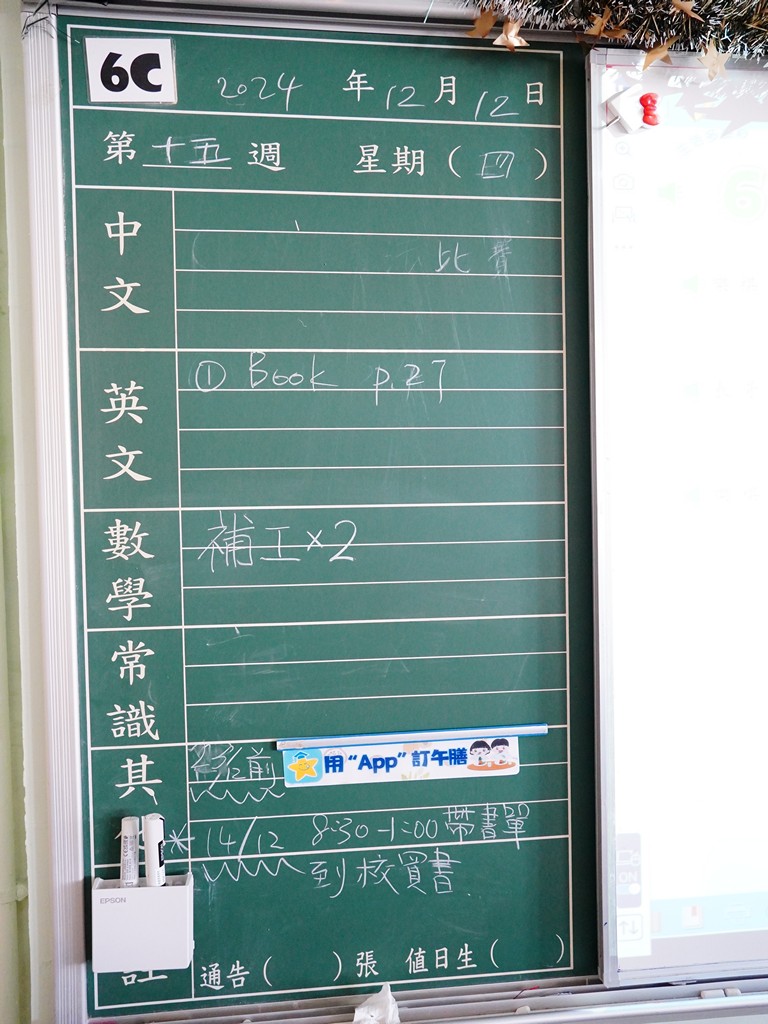 6C
2024 年 12 月 12 日
第 十五 週 星期 ( 四 )
中文
比賽
英文
① Book p.27
數學
補工×2
常識
其
/12前
用“App”訂午膳
* 14/12 8:30-1:00 帶書單
到校買書.
EPSON
註
通告 ( ) 張 值日生 ( )
ON